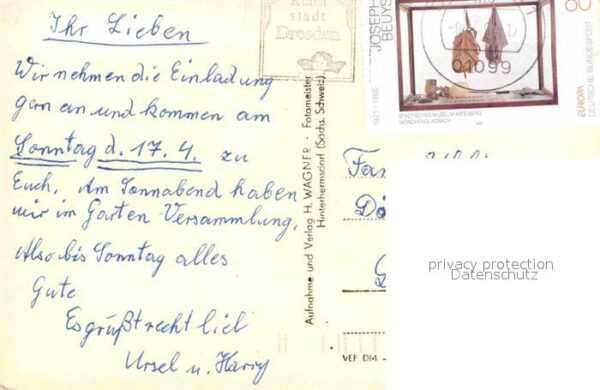 Ihr Lieben
Wir nehmen die Einladung
gern an und kommen am
Sonntag d. 17.4. zu
Euch. Am Sonnabend haben
wir im Garten Versammlung.
Also bis Sonntag alles
Gute
Es grüßt recht lieb
Ursel u. Harry
Kunst
stadt
Dresden
Aufnahme und Verlag H. WAGNER - Fotomeister
Hinterhermsdorf (Sächs. Schweiz)
JOSEPH
BEUYS
1921-1986
01099
80
STÄDTISCHES MUSEUM ABTEIBERG
MÖNCHENGLADBACH
EUROPA
DEUTSCHE BUNDESPOST
Fam
privacy protection
Datenschutz
VEP DM -